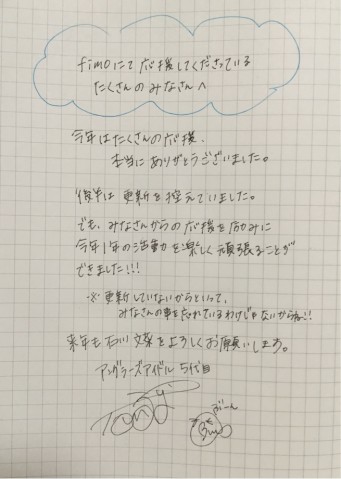 fimoにて応援してくださっている
たくさんのみなさんへ
今年はたくさんの応援、
本当にありがとうございました。
後半は更新を控えていました。
でも、みなさんからの応援を励みに
今年1年の活動を楽しく頑張ることが
できました!!!
※更新していないからといって、
みなさんの事を忘れているわけじゃないからね!!
来年も石川文菜をよろしくお願いします。
アングラーズアイドル 5代目